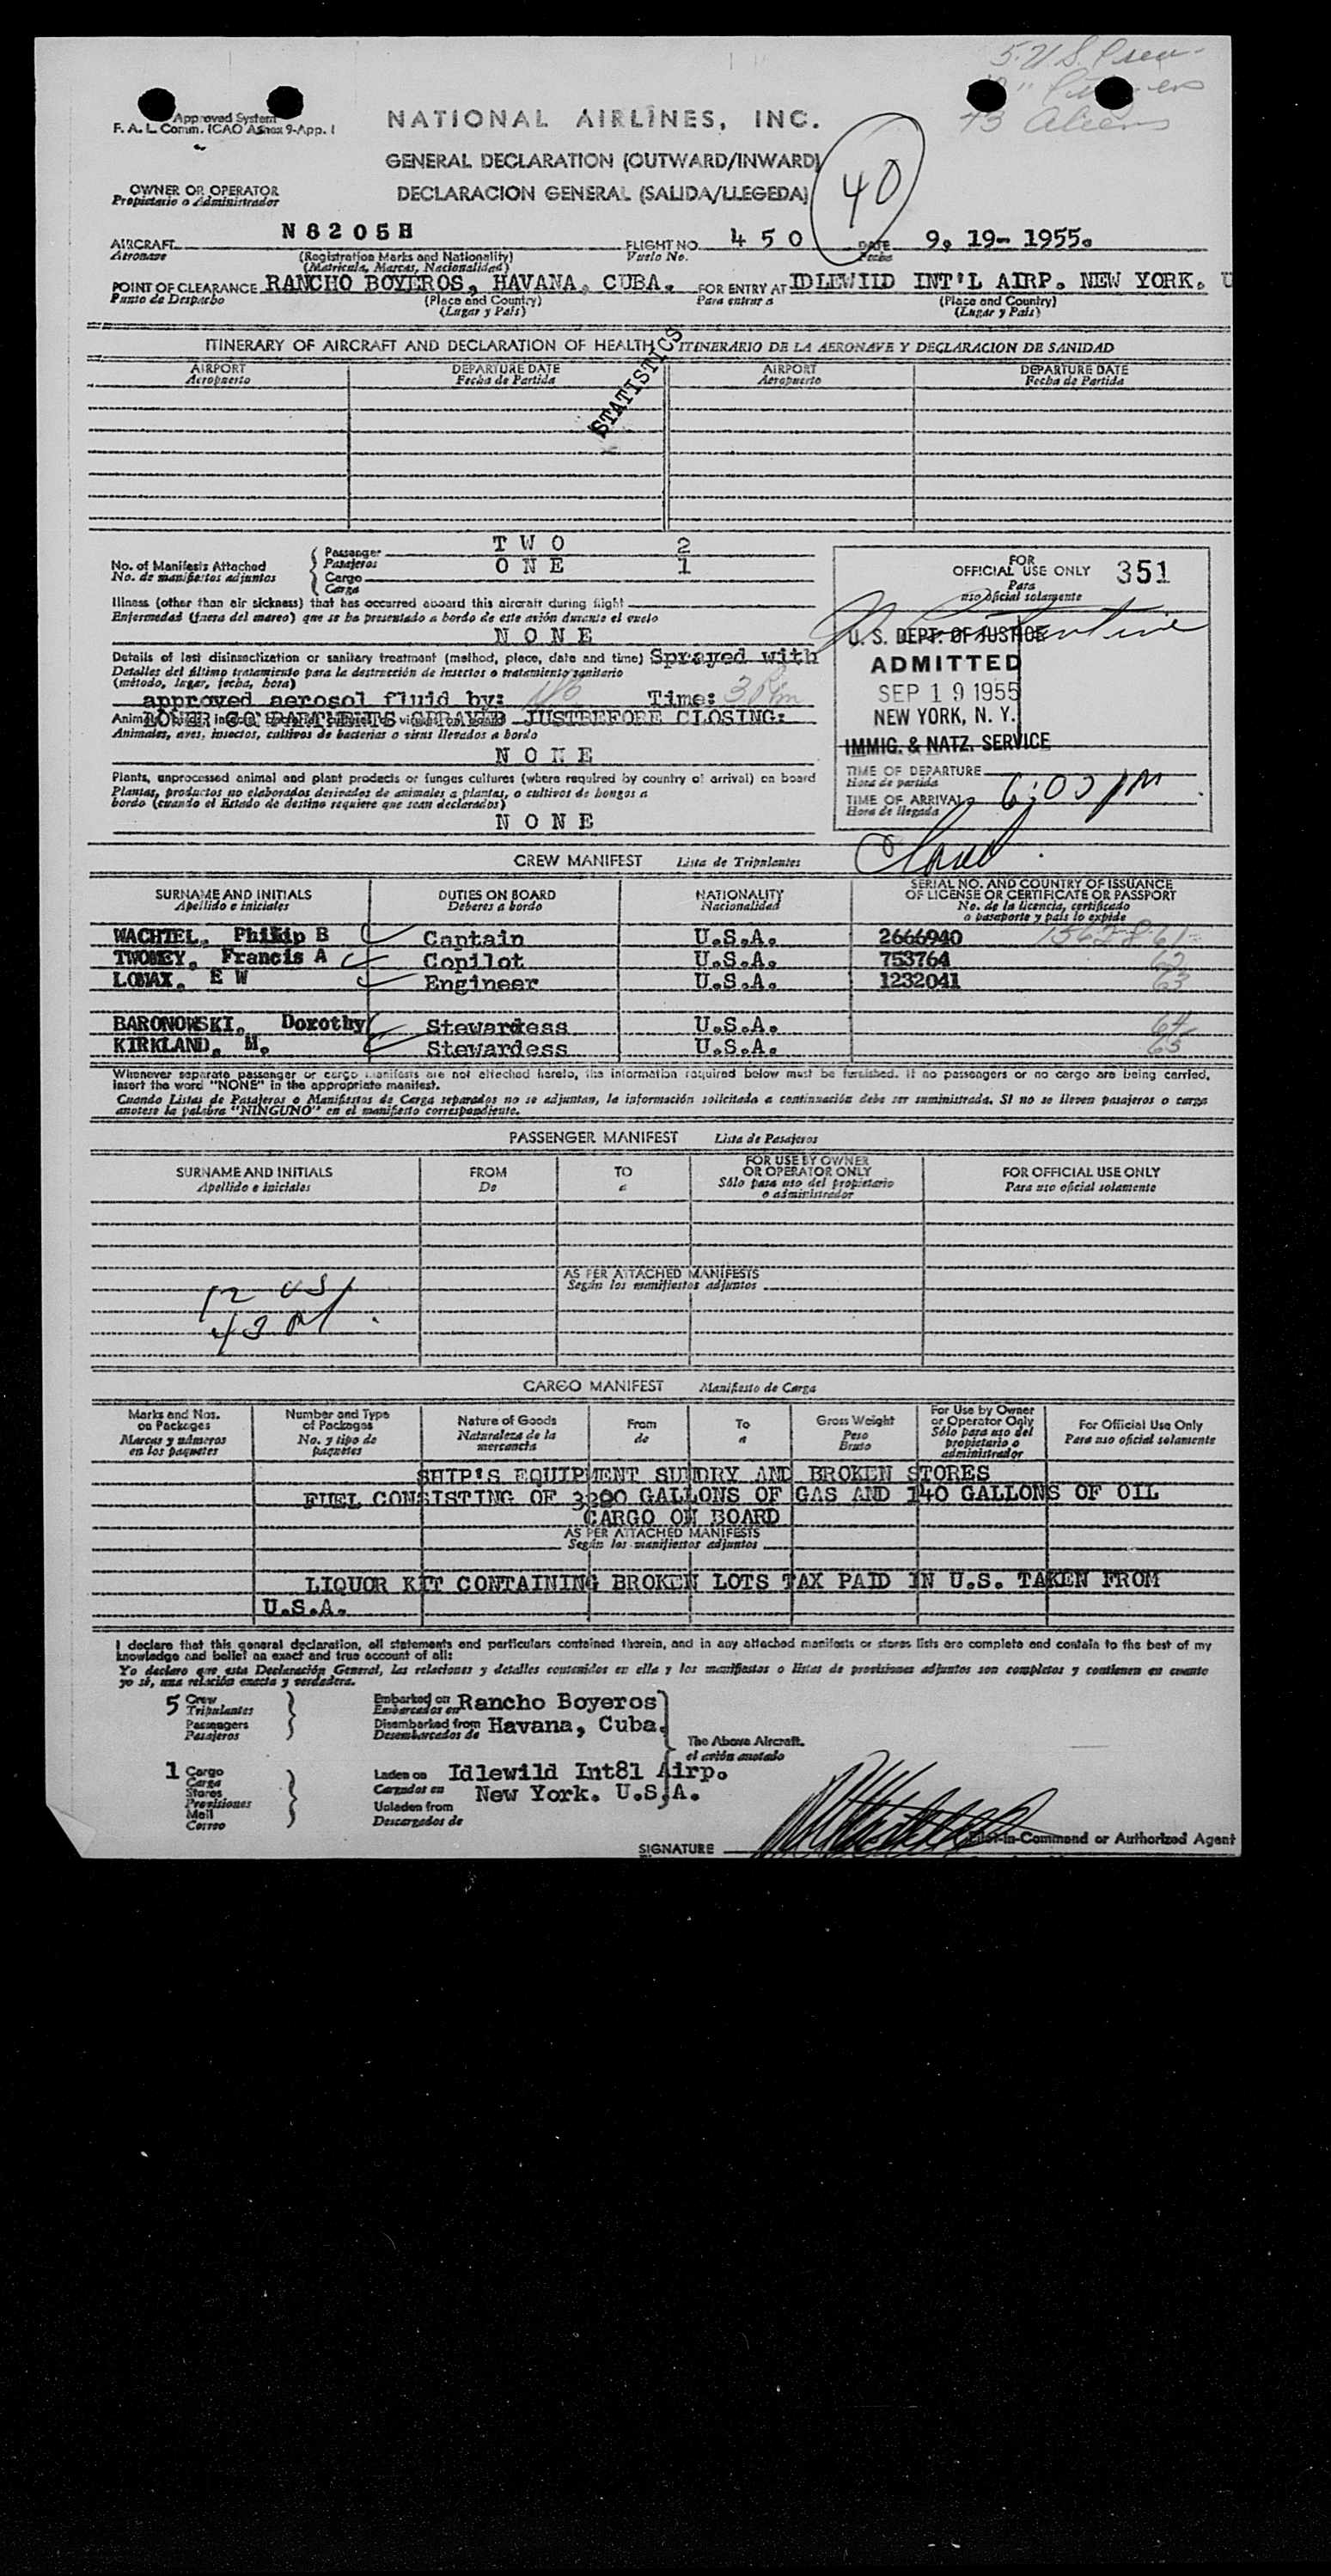 5 U S Crew
Approved System
F. A. L. Comm. ICAO Annex 9-App. 1
43 Aliens
NATIONAL AIRLINES, INC.
GENERAL DECLARATION (OUTWARD/INWARD)
DECLARACION GENERAL (SALIDA/LLEGEDA)
40
OWNER OR OPERATOR
Propietario o Administrador
AIRCRAFT N8205H FLIGHT NO. 450 DATE 9, 19- 1955.
Aeronave (Registration Marks and Nationality) Vuelo No. Fecha
(Matricula, Marcas, Nacionalidad)
POINT OF CLEARANCE RANCHO BOYEROS, HAVANA, CUBA. FOR ENTRY AT IDLEWIID INT'L AIRP. NEW YORK. U
Punto de Despacho (Place and Country) Para entrar a (Place and Country)
(Lugar y Pais) (Lugar y Pais)
ITINERARY OF AIRCRAFT AND DECLARATION OF HEALTH ITINERARIO DE LA AERONAVE Y DECLARACION DE SANIDAD
STATISTICS
AIRPORT DEPARTURE DATE AIRPORT DEPARTURE DATE
Aeropuerto Fecha de Partida Aeropuerto Fecha de Partida
No. of Manifests Attached Passenger TWO 2
No. de manifiestos adjuntos Pasajeros ONE 1
Cargo
Carga
Illness (other than air sickness) that has occurred aboard this aircraft during flight
Enfermedad (fuera del mareo) que se ha presentado a bordo de este avión durante el vuelo
NONE
Details of last disinsectization or sanitary treatment (method, place, date and time) Sprayed with
Detalles del último tratamiento para la destrucción de insectos o tratamiento sanitario
(método, lugar, fecha, hora)
approved aerosol fluid by: Time: 3
SPRAYED JUSTBEFORE CLOSING:
Animales, aves, insectos, cultivos de bacterias o virus llevados a bordo
NONE
Plants, unprocessed animal and plant products or fungus cultures (where required by country of arrival) on board
Plantas, productos no elaborados derivados de animales a plantas, o cultivos de hongos a
bordo (cuando el Estado de destino requiere que sean declarados)
NONE
FOR
OFFICIAL USE ONLY 351
Para
uso oficial solamente
U. S. DEPT. OF JUSTICE
ADMITTED
SEP 19 1955
NEW YORK, N. Y.
IMMIG. & NATZ. SERVICE
TIME OF DEPARTURE
Hora de partida
TIME OF ARRIVAL 6:00 PM
Hora de llegada
CREW MANIFEST Lista de Tripulantes
SURNAME AND INITIALS DUTIES ON BOARD NATIONALITY SERIAL NO. AND COUNTRY OF ISSUANCE
OF LICENSE OR CERTIFICATE OR PASSPORT
Apellido e iniciales Deberes a bordo Nacionalidad No. de la licencia, certificado
o pasaporte y pais lo expide
WACHTEL, Philip B Captain U.S.A. 2666940 1562861
TWOMEY, Francis A Copilot U.S.A. 753764 62
LOMAX, E W Engineer U.S.A. 1232041 63
BARONOWSKI, Dorothy Stewardess U.S.A. 64
KIRKLAND, M. Stewardess U.S.A. 65
Whenever separate passenger or cargo manifests are not attached hereto, the information required below must be furnished. If no passengers or no cargo are being carried,
insert the word "NONE" in the appropriate manifest.
Cuando Listas de Pasajeros o Manifiestos de Carga separados no se adjuntan, la información solicitada a continuación debe ser suministrada. Si no se lleven pasajeros o carga
anotese la palabra "NINGUNO" en el manifiesto correspondiente.
PASSENGER MANIFEST Lista de Pasajeros
SURNAME AND INITIALS FROM TO FOR USE BY OWNER
OR OPERATOR ONLY FOR OFFICIAL USE ONLY
Apellido e iniciales De a Sólo para uso del propietario
o administrador Para uso oficial solamente
AS PER ATTACHED MANIFESTS
Según los manifiestos adjuntos
12 US
43 Al
CARGO MANIFEST Manifiesto de Carga
Marks and Nos.
on Packages
Marcas y números
en los paquetes
Number and Type
of Packages
No. y tipo de
paquetes
Nature of Goods
Naturaleza de la
mercancia
From
de
To
a
Gross Weight
Peso
Bruto
For Use by Owner
or Operator Only
Sólo para uso del
propietario o
administrador
For Official Use Only
Para uso oficial solamente
SHIP'S EQUIPMENT SUNDRY AND BROKEN STORES
FUEL CONSISTING OF 3200 GALLONS OF GAS AND 140 GALLONS OF OIL
CARGO ON BOARD
AS PER ATTACHED MANIFESTS
Según los manifiestos adjuntos
LIQUOR KIT CONTAINING BROKEN LOTS TAX PAID IN U.S. TAKEN FROM
U.S.A.
I declare that this general declaration, all statements and particulars contained therein, and in any attached manifests or stores lists are complete and contain to the best of my
knowledge and belief an exact and true account of all:
Yo declaro que esta Declaración General, las relaciones y detalles contenidos en ella y los manifiestos o listas de provisiones adjuntos son completos y contienen en cuanto
yo sé, una relación exacta y verdadera.
5 Crew
Tripulantes
Passengers
Pasajeros
Embarked on Rancho Boyeros
Embarcados en
Disembarked from Havana, Cuba.
Desembarcados de
The Above Aircraft.
el avión anotado
1 Cargo
Carga
Stores
Provisiones
Mail
Correo
Laden on Idlewild Int81 Airp.
Cargados en New York. U.S.A.
Unladen from
Descargados de
SIGNATURE Pilot-in-Command or Authorized Agent